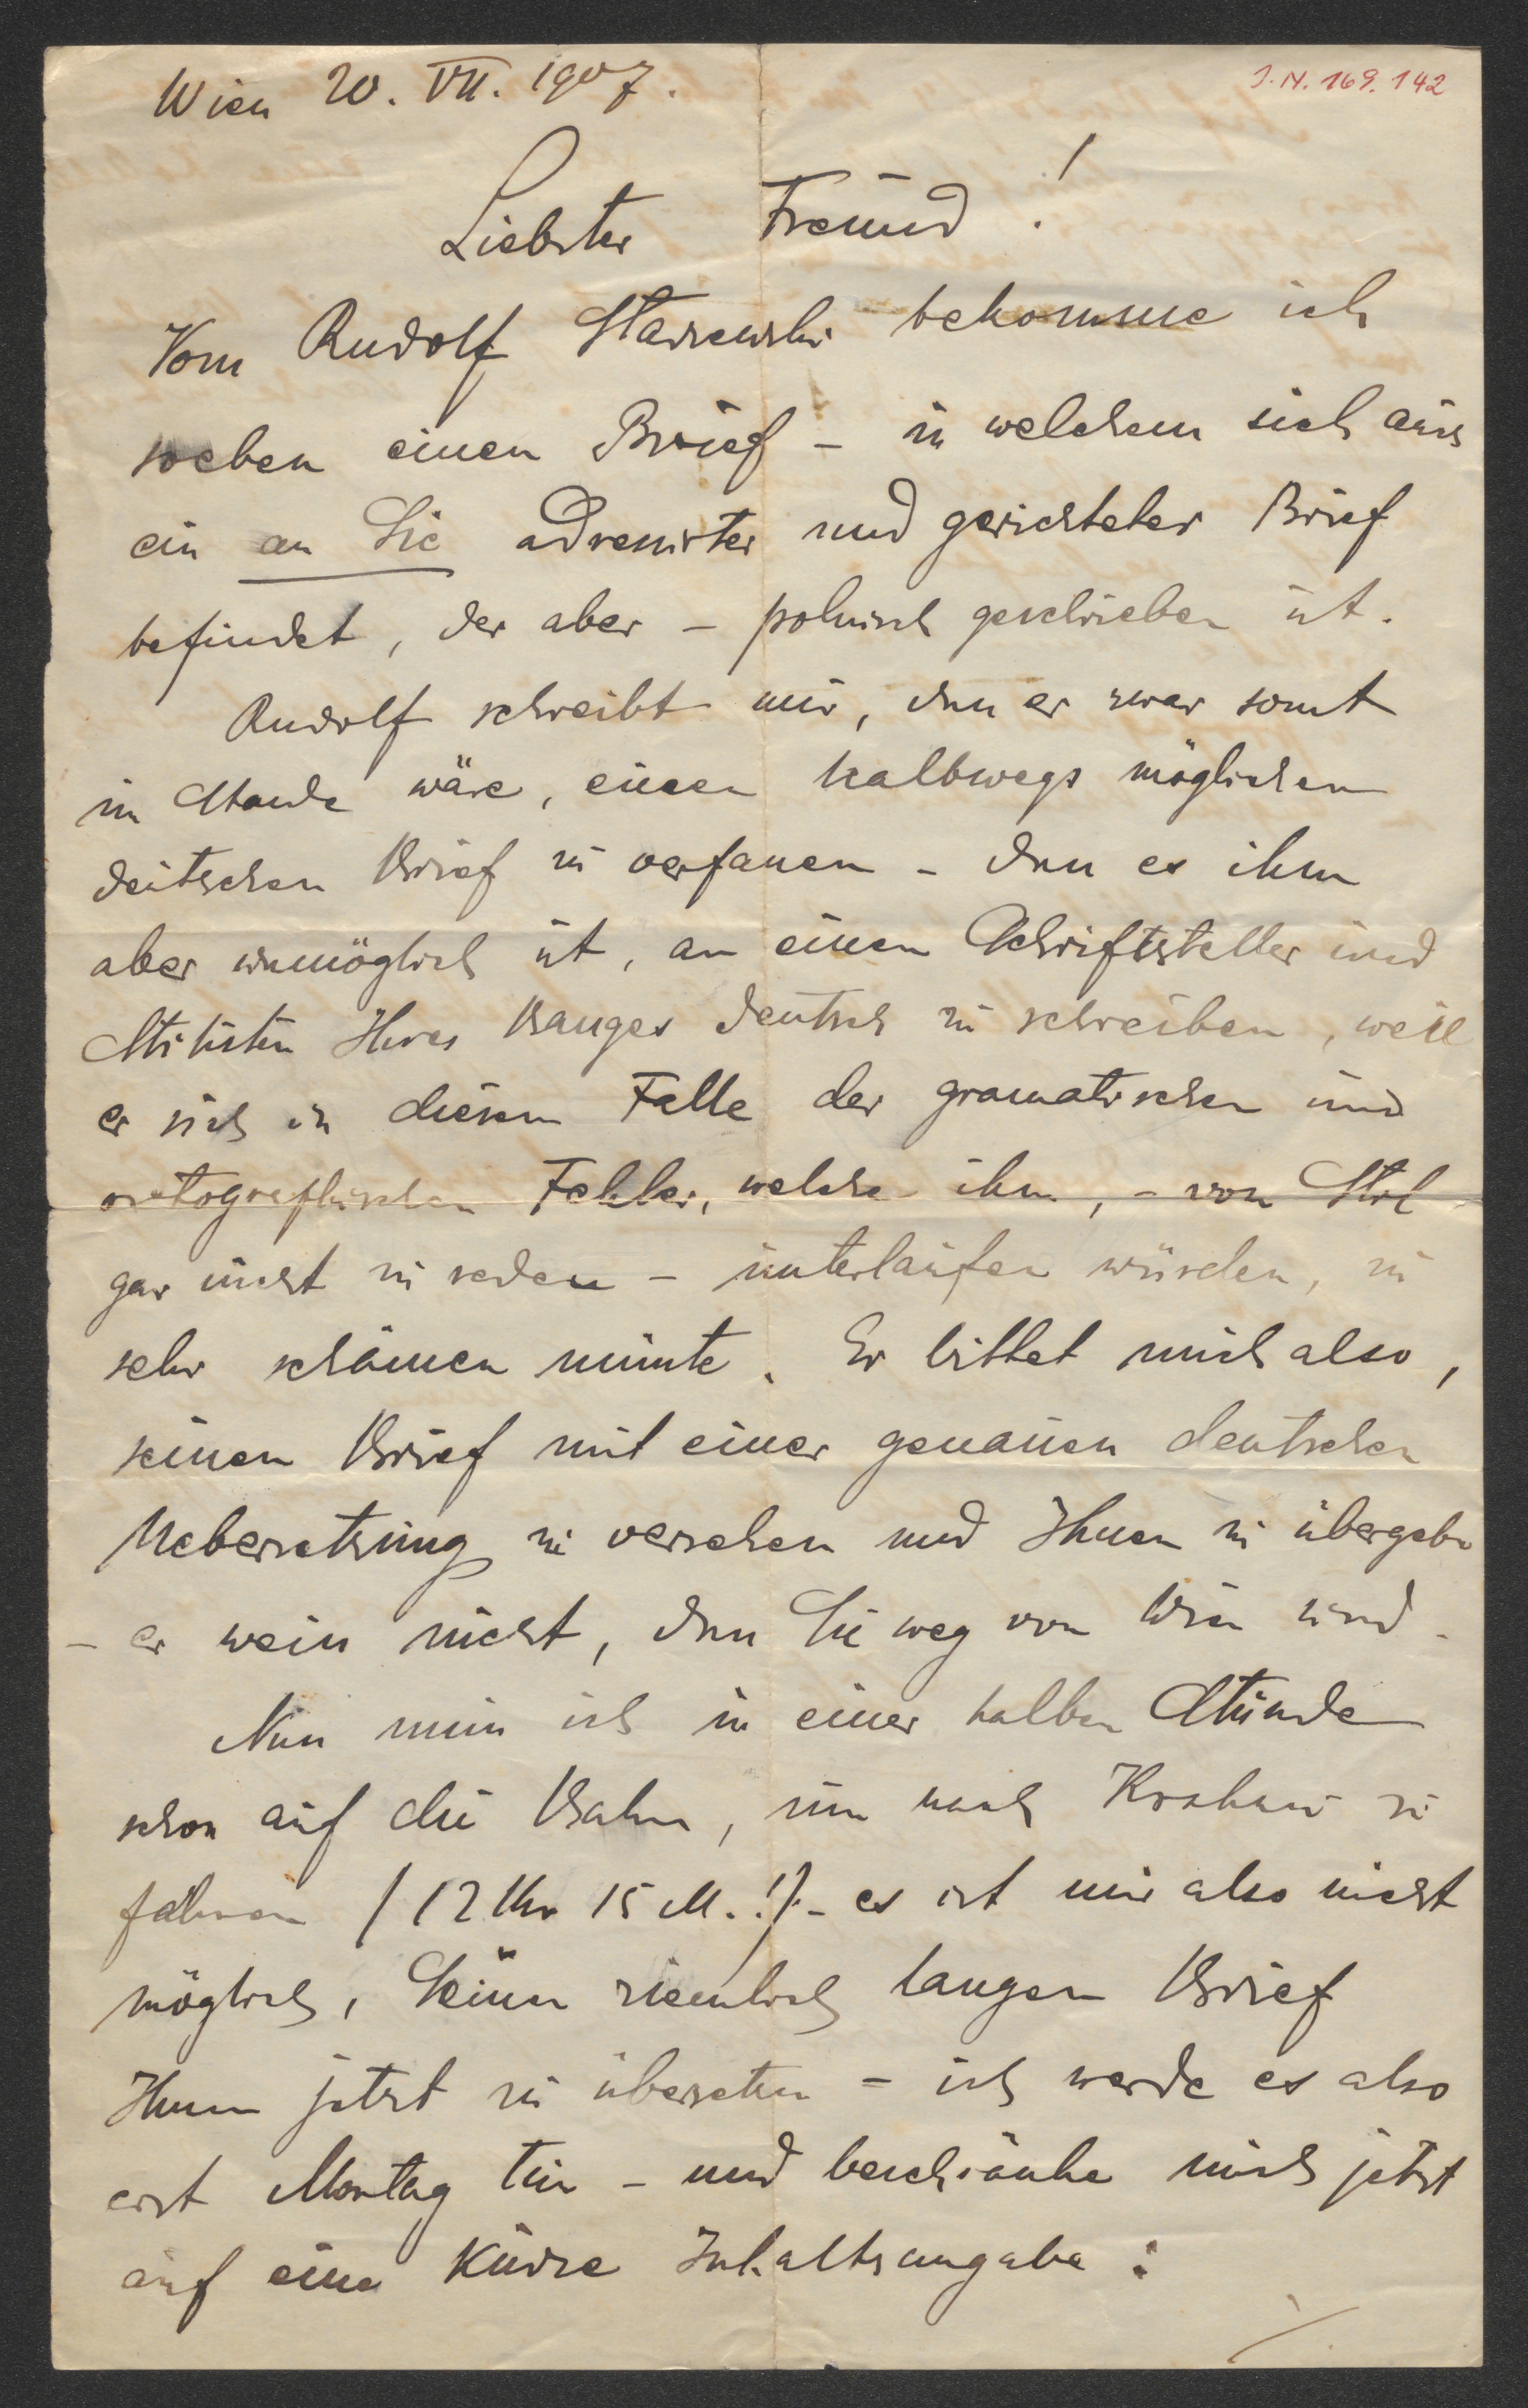 Wien 20. VII. 1907.
J.N. 169.142
Liebster Freund!
Vom Rudolf Starzewski bekomme ich
soeben einen Brief – in welchem sich auch
ein an Sie adressirter und gerichteter Brief
befindet, der aber – polnisch geschrieben ist.
Rudolf schreibt mir, dass er zwar sonst
im Stande wäre, einen halbwegs möglichen
deutschen Brief zu verfassen – dass es ihm
aber unmöglich ist, an einen Schriftsteller und
Stilisten Ihres Ranges deutsch zu schreiben, weil
er sich in diesem Falle der gramatischen und
ortografischen Fehler, welche ihm, – von Stil
gar nicht zu reden – unterlaufen würden, zu
sehr schämen müsste. Er bittet mich also,
seinen Brief mit einer genauen deutschen
Uebersetzung zu versehen und Ihnen zu übergeben
– er weiss nicht, dass Sie weg von Wien sind.
Nun muss ich in einer halben Stunde
schon auf die Bahn, um nach Krakau zu
fahren (12 Uhr 15 M.!) – es ist mir also nicht
möglich, Seinen ziemlich langen Brief
Ihnen jetzt zu übersetzen – ich werde es also
erst Montag tun – und beschränke mich jetzt
auf eine kurze Inhaltsangabe:
./.